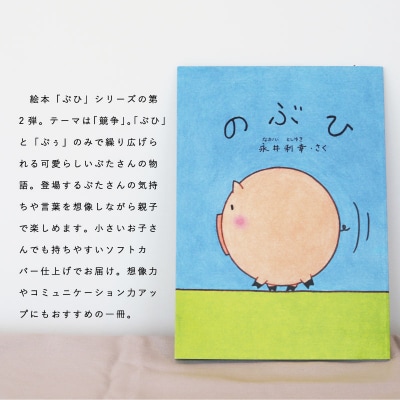 絵本「ぷひ」シリーズの第
2弾。テーマは「競争」。「ぷひ」
と「ぷぅ」のみで繰り広げら
れる可愛らしいぶたさんの物
語。登場するぶたさんの気持
ちや言葉を想像しながら親子
で楽しめます。小さいお子さ
んでも持ちやすいソフトカ
バー仕上げでお届け。想像力
やコミュニケーション力アッ
プにもおすすめの一冊。
のぷひ
ながい としゆき
永井利幸・さく